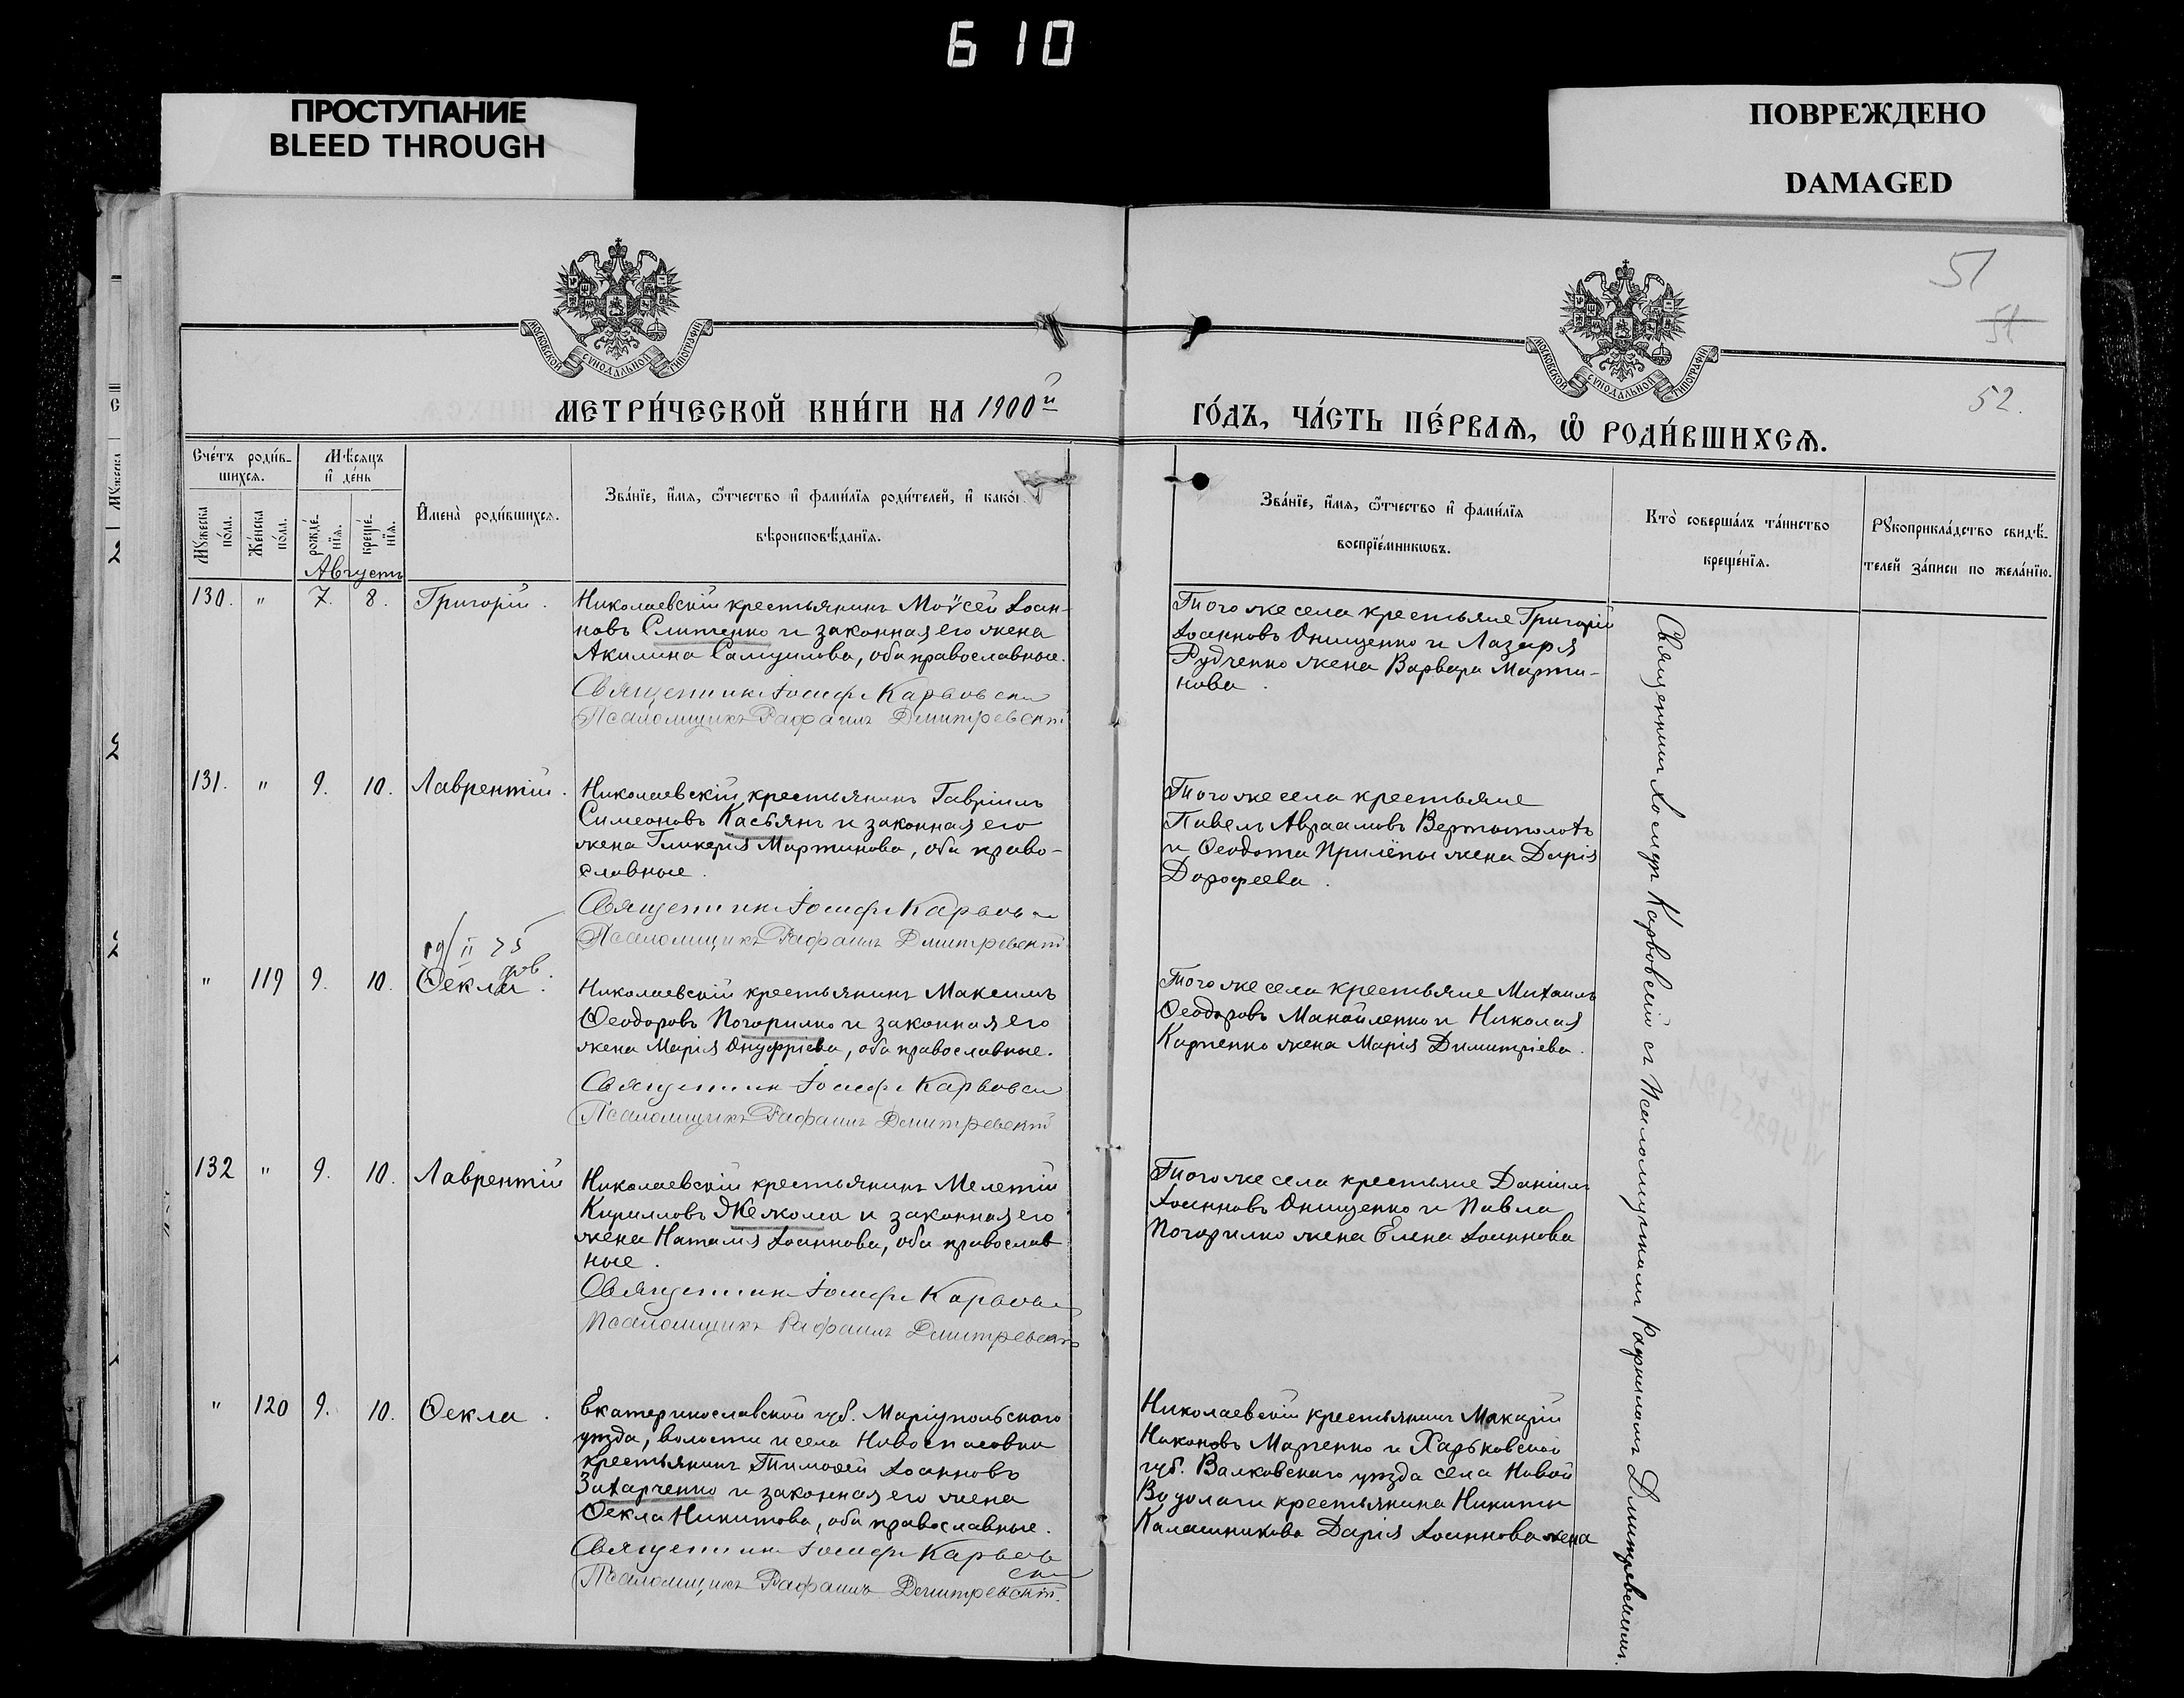 610
ПРОСТУПАНИЕ
BLEED THROUGH
ПОВРЕЖДЕНО
DAMAGED
51
51
52.
МОСКОВСКОЙ СѴНОДАЛЬНОЙ ТИПОГРАФІИ
МОСКОВСКОЙ СѴНОДАЛЬНОЙ ТИПОГРАФІИ
МЕТРИ́ЧЕСКОЙ КНИ́ГИ НА 1900й
ГО́ДЪ, ЧА́СТЬ ПЕ́РВАѦ, Ѡ РОДИ́ВШИХСѦ.
Сче́тъ роди́в-
шихсѧ.
Мѣсяцъ
и де́нь
Мꙋжеска
по́ла.
Же́нска
по́ла.
рожде́-
нїѧ.
креще́-
нїѧ.
Августъ
Имена̀ роди́вшихсѧ.
Зва́нїе, и́мѧ, ѻ҆́тчество и҆ фами́лїѧ роди́телей, и҆ како́г
вѣроисповѣ́данїѧ.
Зва́нїе, и́мѧ, ѻ҆́тчество и҆ фами́лїѧ
воспрїе́мникѡвъ.
Кто̀ соверша́лъ та́инство
креще́нїѧ.
Рꙋкоприкла́дство свидѣ́-
телей за́писи по жела́нїю.
130. " 7. 8. Григорій.
Николаевскій крестьянинъ Моѵсей Іоан-
новъ Слипченко и законная его жена
Акилина Самуилова, оба православные.
Священникъ Іосифъ Карвовскі
Псаломщикъ Рафаилъ Дмитревскій
Того же села крестьяне Григорій
Іоанновъ Онищенко и Лазаря
Рудченко жена Варвара Марти-
нова.
131. " 9. 10. Лаврентій.
Николаевскій крестьянинъ Гавріилъ
Симеоновъ Касьянъ и законная его
жена Гликерія Мартинова, оба право-
славные.
Священникъ Іосифъ Карвов
Псаломщикъ Рафаилъ Дмитревскій
Того же села крестьяне
Павелъ Авраамовъ Вертополохъ
и Ѳеодота Прилёпы жена Дарія
Дорофеева.
19/II 25
" 119 9. 10. Ѳекла.
Николаевскій крестьянинъ Максимъ
Ѳеодоровъ Погорилко и законная его
жена Марія Онуфріева, оба православные.
Священник Іосифъ Карвовск
Псаломщикъ Рафаилъ Дмитревскій
Того же села крестьяне Михаилъ
Ѳеодоровъ Манойленко и Николая
Карпенко жена Марія Димитріева.
132 " 9. 10. Лаврентій
Николаевскій крестьянинъ Мелетій
Кирилловъ Жежома и законная его
жена Наталія Іоаннова, оба православ
ные.
Священник Іосифъ Карвовс
Псаломщикъ Рафаилъ Дмитревскій
Того же села крестьяне Даніилъ
Іоанновъ Онищенко и Павла
Погорилко жена Елена Іоаннова
" 120 9. 10. Ѳекла.
Екатеринославской губ. Маріупольскаго
уѣзда, волости и села Новоспасовки
крестьянинъ Тимоѳей Іоанновъ
Захарченко и законная его жена
Ѳекла Никитова, оба православные.
Священник Іосифъ Карвов
ски
Псаломщикъ Рафаилъ Дмитревскій.
Николаевскій крестьянинъ Макарій
Никоновъ Марченко и Харьковской
губ. Валковскаго уѣзда села Новой
Водолаги крестьянина Никиты
Калашникова Дарія Іоаннова жена
Священникъ Іосифъ Карвовскій съ Псаломщикомъ Рафаиломъ Дмитревскимъ.